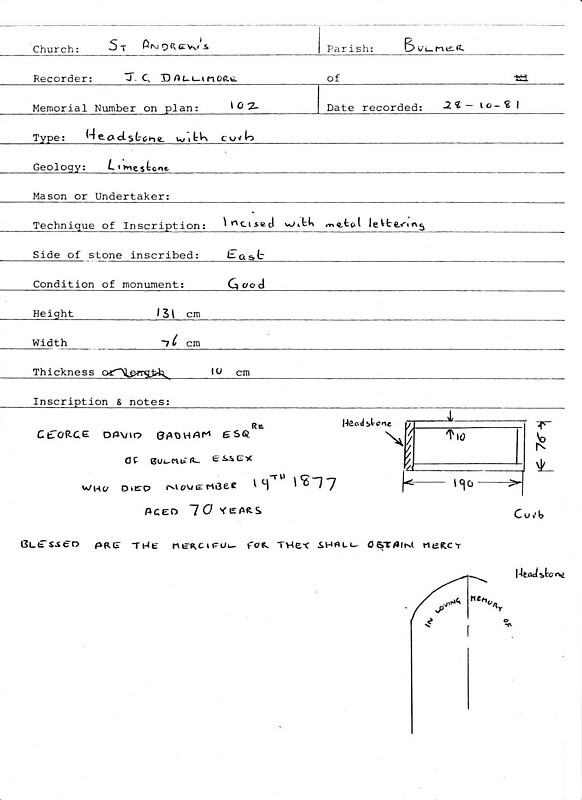 Church: St Andrew's Parish: Bulmer
Recorder: J.C. Dallimore of
Memorial Number on plan: 102 Date recorded: 28-10-81
Type: Headstone with curb
Geology: Limestone
Mason or Undertaker:
Technique of Inscription: Incised with metal lettering
Side of stone inscribed: East
Condition of monument: Good
Height 131 cm
Width 76 cm
Thickness or length 10 cm
Inscription & notes:
GEORGE DAVID BADHAM ESQRE
OF BULMER ESSEX
WHO DIED NOVEMBER 19TH 1877
AGED 70 YEARS
BLESSED ARE THE MERCIFUL FOR THEY SHALL OBTAIN MERCY
Headstone
10
76
190
Curb
Headstone
IN LOVING MEMORY OF